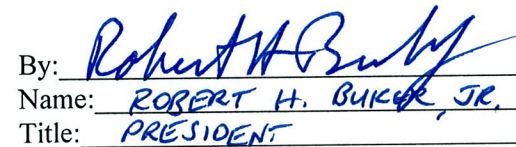 By: Robert H Buker
Name: ROBERT H. BUKER, JR.
Title: PRESIDENT